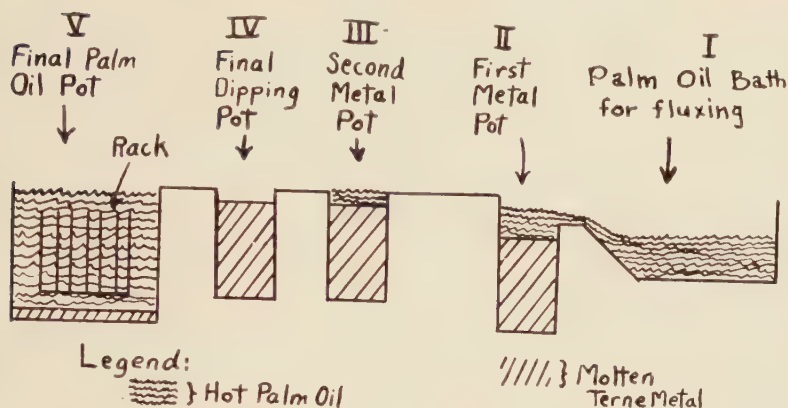 V
Final Palm
Oil Pot
Rack
IV
Final
Dipping
Pot
III
Second
Metal
Pot
II
First
Metal
Pot
I
Palm Oil Bath
for fluxing
Legend:
} Hot Palm Oil
} Molten
Terne Metal